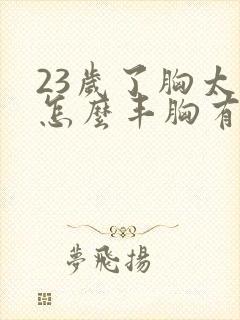 23歲了胸太
怎麼丰胸有
夢飛揚